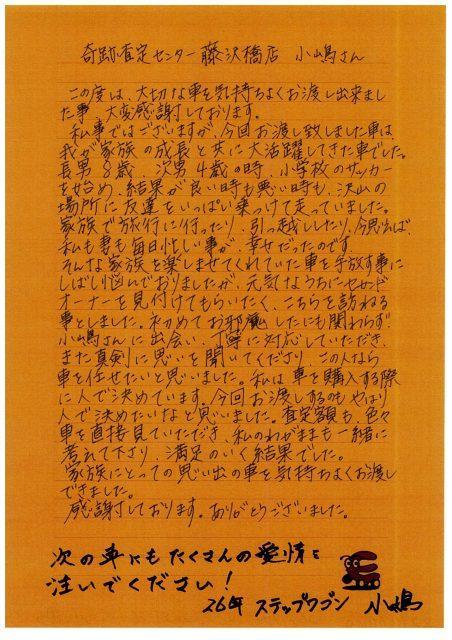 奇跡の査定センター 藤沢橋店 小嶋さん
この度は、大切な車を気持ちよくお渡し出来まし
た事、大変感謝しております。
私事ではございますが、今回お渡し致しました車は、
我が家族の成長と共に大活躍してきた車でした。
長男8歳、次男4歳の時、小学校のサッカー
を始め、結果が良い時も悪い時も、沢山の
場所に友達をいっぱい乗っけて走っていました。
家族で旅行に行ったり、引っ越ししたり、今思えば、
私も妻も毎日忙しい事が、幸せだったのです。
そんな家族を楽しませてくれていた車を手放す事に
しばし悩んでおりましたが、元気なうちにセカンド
オーナーを見付けてもらいたく、こちらを訪ねる
事としました。初めてお邪魔したにも関わらず
小嶋さんに出会い、丁寧に対応していただき、
また真剣に思いを聞いてくださり、この人なら
車を任せたいと思いました。私は車を購入する際
に人で決めています。今回お渡しするのもやはり
人で決めたいなと思いました。査定額も、色々
車を直接見ていただき、私のわがままも一緒に
考えて下さり、満足のいく結果でした。
家族にとっての思い出の車を気持ちよくお渡し
できました。
感謝しております。ありがとうございました。
次の車にもたくさんの愛情を
注いでください!
26年 ステップワゴン 小嶋